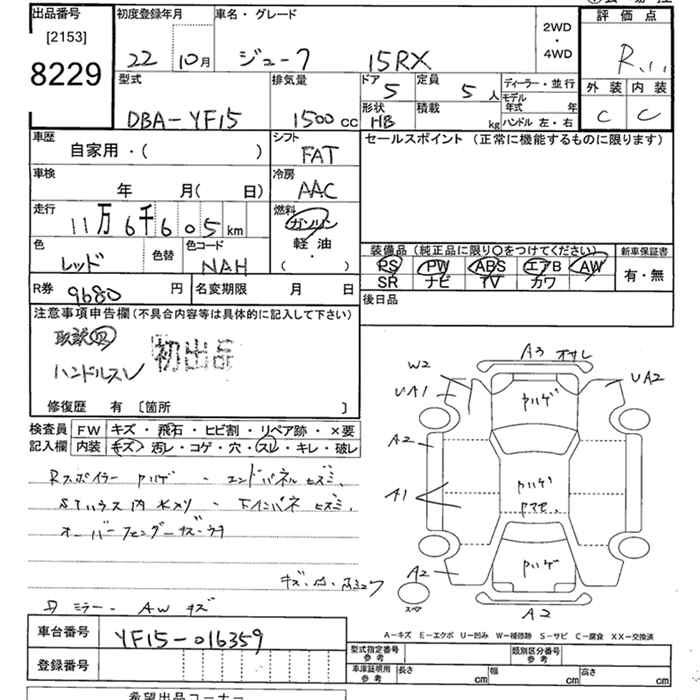 出品番号
[2153]
8229
初度登録年月
22 10月
車名・グレード
ジューク 15RX
2WD
・
4WD
評価点
R
外装 内装
C C
型式
DBA-YF15
排気量
1500 cc
ドア
5
定員
5人
形状
HB
積載
kg
ディーラー・並行
モデル年式 年
ハンドル 左・右
車歴
自家用・( )
シフト
FAT
セールスポイント (正常に機能するものに限ります)
車検
年 月( 日)
冷房
AAC
走行
11万6千605km
燃料
ガソリン
軽油
・
( )
色
レッド
色替
色コード
NAH
装備品(純正品に限り○をつけてください)
PS PW ABS エアB AW
SR ナビ TV カワ
新車保証書
有・無
R券 9680 円
名変期限 月 日
後日品
注意事項申告欄(不具合内容等は具体的に記入して下さい)
取説
ハンドルスレ
初出品
修復歴 有 [箇所 ]
検査員記入欄
FW キズ・飛石・ヒビ割・リペア跡・×要
内装 キズ・汚レ・コゲ・穴・スレ・キレ・破レ
Rスポイラー ヤハゲ・エンドパネルヒズミ
オーバーフェンダーキズ・
ミラー・AWキズ
W2
UA1
A2
A1
A2
A3
UA2
ヤハゲ
ヤハゲ
ヤハゲ
スペア
A2
車台番号
YF15-016359
登録番号
A-キズ E-エクボ U-凹み W-補修跡 S-サビ C-腐食 XX-交換済
型式指定番号 参考
類別区分番号 参考
車庫証明用 参考
長さ cm
幅 cm
高さ cm
希望出品コーナー